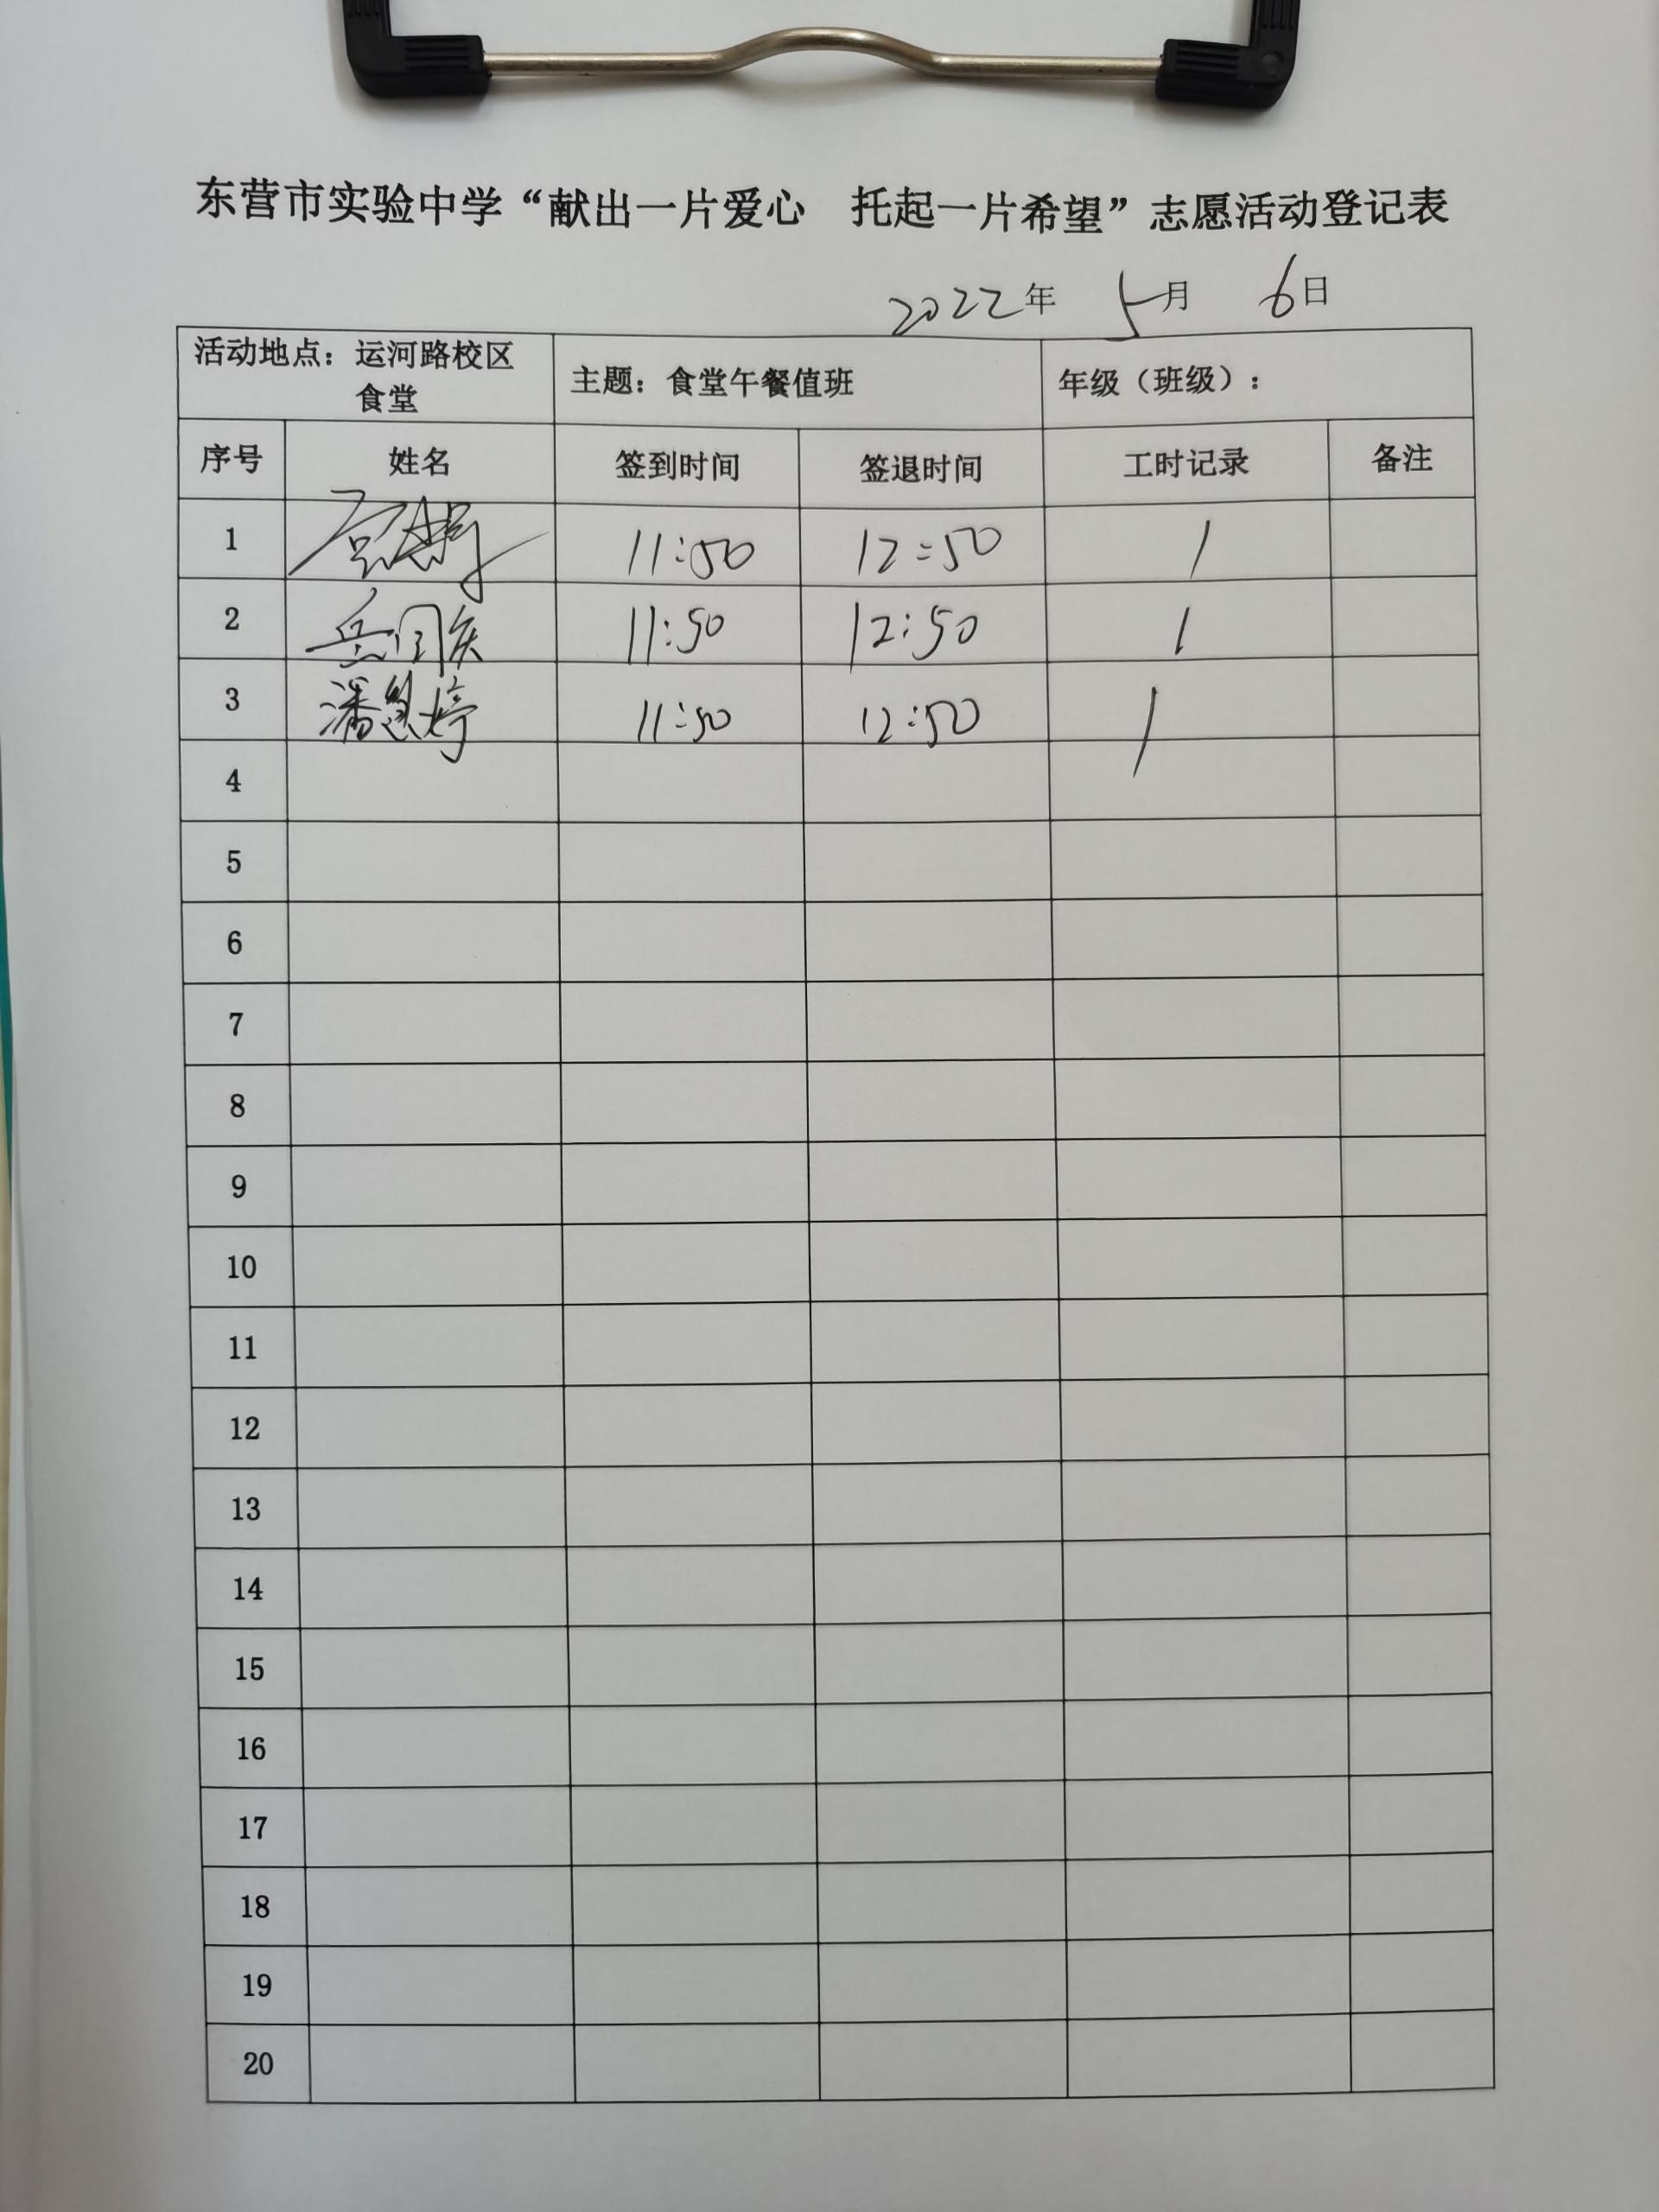 东营市实验中学“献出一片爱心　托起一片希望”志愿活动登记表
2022年 5月 6日
活动地点：运河路校区
食堂
主题：食堂午餐值班
年级（班级）：
序号 姓名 签到时间 签退时间 工时记录 备注
1 11:50 12:50 1
2 岳 11:50 12:50 1
3 潘 婷 11:50 12:50 1
4
5
6
7
8
9
10
11
12
13
14
15
16
17
18
19
20